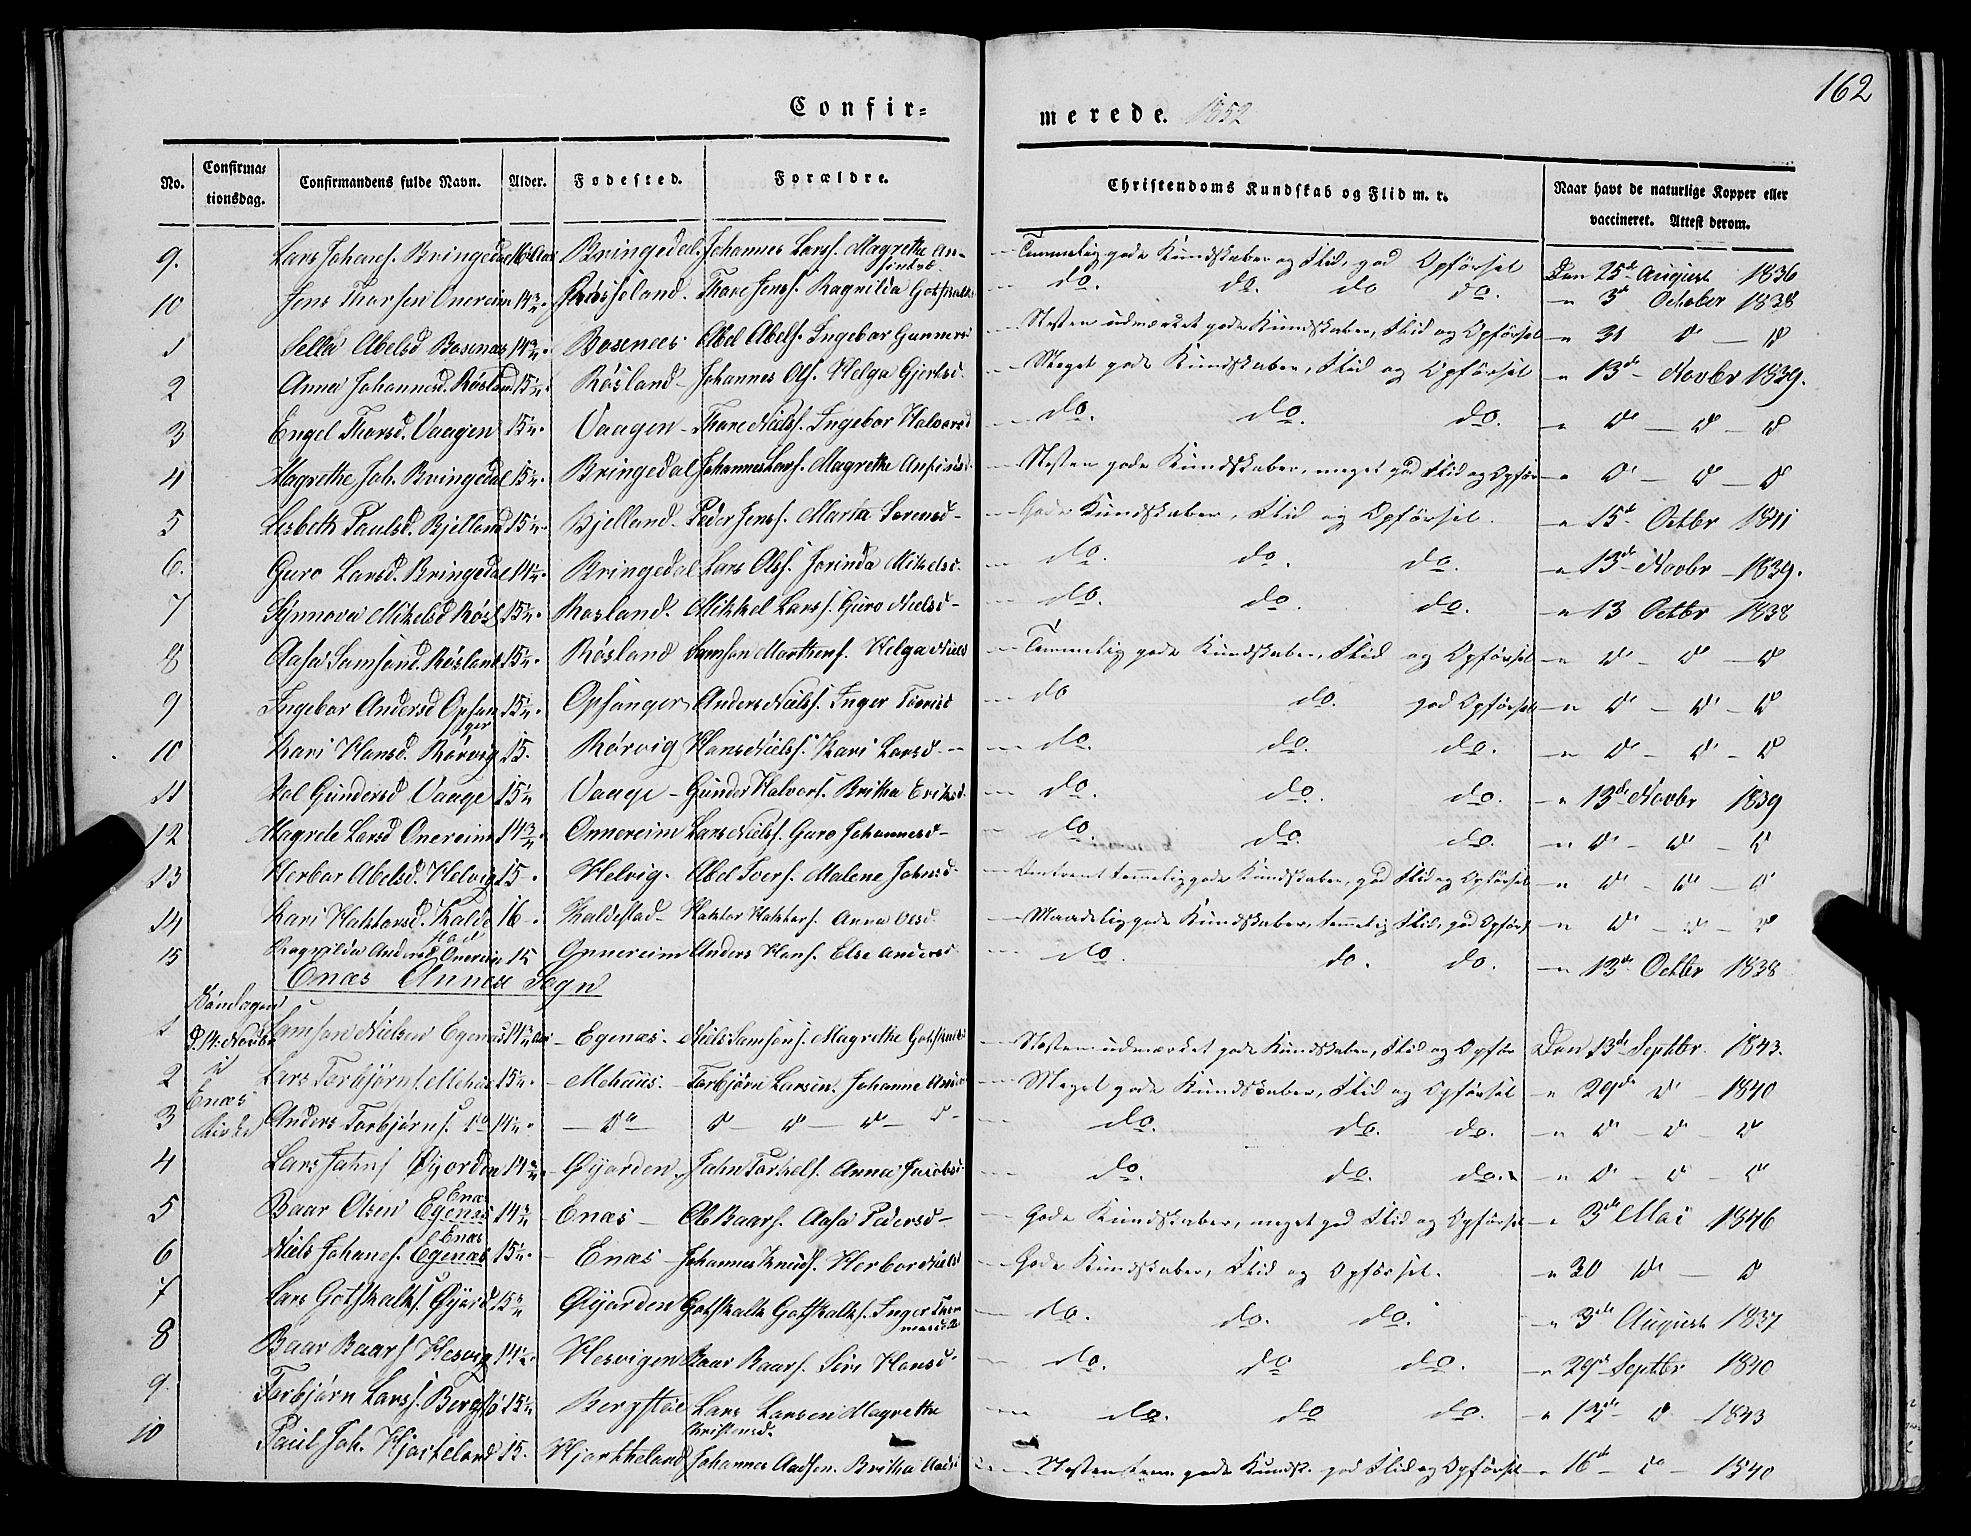 162
Confir=
merede. 1852
No. Confirma=tionsdag. Confirmandens fulde Navn. Alder. Fødested. Forældre. Christendoms Kundskab og Flid m. v. Naar havt de naturlige Kopper eller vaccineret. Attest derom.
9. Lars Johansf. Bringedal Bringedal. Johannes Larsf. Magrethe An- Temmelig gode Kundskaber og Flid, god Opførsel Den 25de August 1836
10 Jens Thorsen Onereim 14 3/4 Thore Jensf. Ragnilda Gotskalks do. do. do do. " 3de October 1838
1 Sella Abelsd Bosenæs 14 3/4. Bosenees Abel Abelsf. Ingebor Gunnarsd Nesten udmærket gode Kundskaber, Flid og Opførsel " 31 d — d
2 Anna Johannesd. Røsland 15 1/4. Røsland Johannes Olsf. Helga Gjertsd. Meget gode Kundskaber, Flid og Opførsel " 13de Novbr 1839.
3 Engel Thorsd. Vaagen 15 1/4. Vaagen Thore Nielsf. Ingebor Halvorsd do. do. do. " d — d — d
4 Magrethe Joh. Bringedal 15 1/4. Bringedal Johannes Larsf. Magrethe Anfinsd. Nesten gode Kundskaber, meget god Flid og Opfør " d — d — d
5 Lisbeth Paulsd. Bjelland 15 1/4. Bjelland Peder Jensf. Maria Sorensd Gode Kundskaber, Flid og Opførsel. " 15de Octbr 1841
6. Guro Larsd. Bringedal 14 1/4. Bringedal Lars Olsf. Jorinda Mikelsd. do. do. do. " 13de Novbr 1839.
7 Synnova Mikelsd Røsl 15 1/4. Rosland. Mikkel Larsf. Guro Nielsd do. do. do. " 13 Octbr 1838
8 Aasa Samsond. Røsland 15 1/4. Røsland Samson Mortensf. Helga Niels Temmelig gode Kundskaber, Flid og Opførsel " d — d — d
9 Ingebor Andersd Opsanger 15 1/4. Opsanger Anders Nielsf. Inger do do. god Opførsel " d — d — d
10 Kari Hansd. Rørvig 15. Rørvig Hans Nielsf. Kari Larsd. do. do. do. " d — d — d
11 Gundersd Vaage 15 1/4 Vaage Gunder Halvorsf. Britha Eriksd. do. do. do. " 13de Novbr 1839
12 Magrete Larsd Onereim 14 3/4 Onnereim Lars Nielsf. Guro Johannesd do. do. do. " d — d — d
13 Herbor Abelsd. Helvig 15. Helvig. Abel Malene Johnsd. temmelig gode Kundskaber, god Flid og Opførsel " d — d — d
14 Kari Haktorsd. Kaldestad 16 Kaldestad Haktor Haktorsf. Anna Olsd Maadelig gode Kundskaber, temmelig Flid, god Opførs " d — d — d
15 Ragnilda Andersd Onereim 15 Onnereim Anders Hansf. Else Andersd. do. do. do. " 13de Octbr 1838
Enæs Annex Sogn
Søndagen d. 14. Novbr i Enæs Kirke
1 Samson Nielsen Egenæs 14 3/4 Egenæs. Niels Samsonsf. Magrethe Gotskalks Nesten udmærket gode Kundskaber, Flid og Opfør Den 13de Septbr. 1843.
2 Lars Torbjørns. Mehus 15 1/4. Mehuus. Torbjørn Larsen. Johanne Anders Meget gode Kundskaber, Flid og Opførsel " 29de d 1840
3 Anders Torbjørns. do 14 1/4. do d — d — d — d do. do. do. " d — d — d
4 Lars Jahnf Øyorden 14 3/4. Øyarden Jahn Torkelsf. Anna Jacobsd do. do. do. " d — d — d
5 Baar Olsen Egenæs Enæs 14 3/4 Enæs Ol Baarsf. Aasa Pedersd Gode Kundskaber, meget god Flid og Opførsel " 3de Mai 1846
6 Niels Johansf. Egenæs Enæs 15 1/4. Enæs Johannes Knudsf. Herbor Nielsd Gode Kundskaber, Flid og Opførsel. " 30 d — d
7 Lars Gotskalks. Øyord 15 3/4 Øyarden Gotskalk Gotskalksf. Inger do. do. do. " 3de August 1837
8 Baar Baarsf Hesvig 14 1/4. Hesvigen Baar Baarsf. Siri Hansd. do. do do. " 29de Septbr 1840
9. Torbjørn Larsf. Bergstø 15 1/4 Bergstøe Lars Larsen Magrethe Christensd. do. do do. " 13de d 1843
10 Paul Joh. Hjorteland 15. Hjortheland Johannes Aadsen. Britha Aads Nesten tem. gode Kundsk. god Flid og Opførsel " 16de d 1840